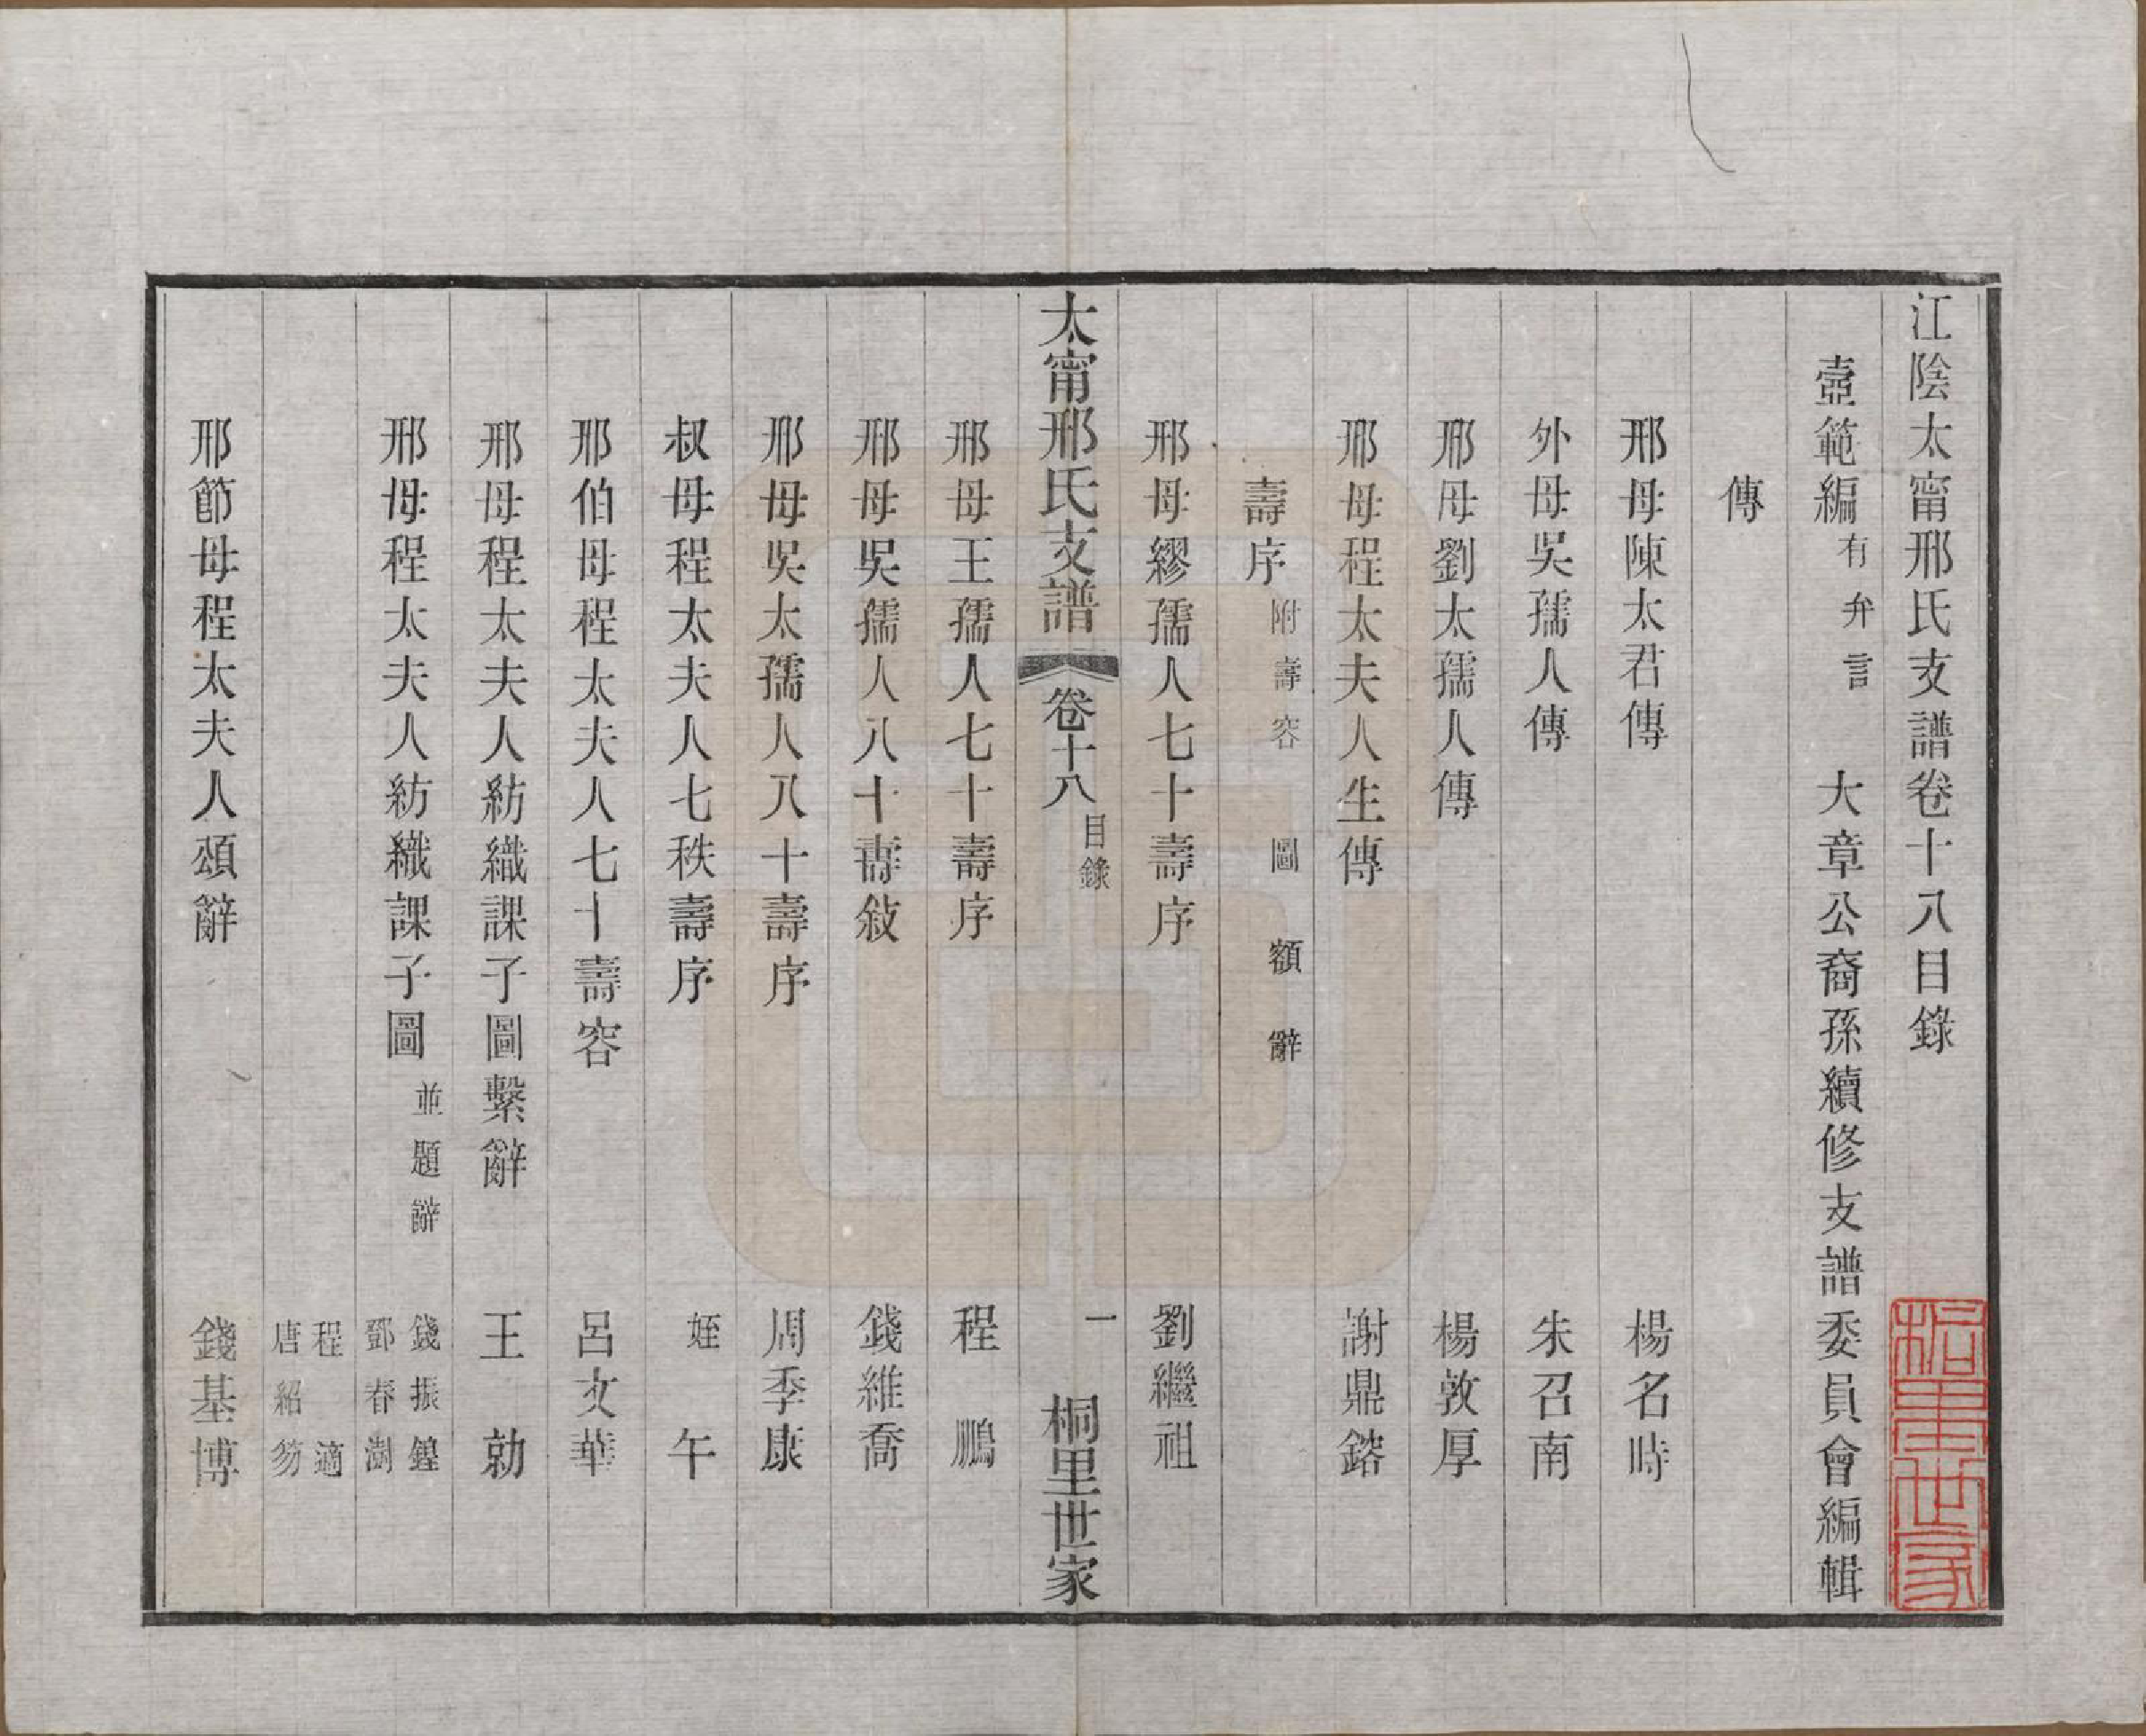 江陰太甯邢氏支譜卷十八目錄
壼範編 有弁言 大章公裔孫續修支譜委員會編輯
傳
邢母陳太君傳 楊名時
外母吳孺人傳 朱召南
邢母劉太孺人傳 楊敦厚
邢母程太夫人生傳 謝鼎鎔
壽序 附壽容 圖 額 辭
邢母繆孺人七十壽序 劉繼祖
太甯邢氏支譜 卷十八 目錄 一 桐里世家
邢母王孺人七十壽序 程鵬
邢母吳孺人八十壽敍 錢維喬
邢母吳太孺人八十壽序 周季康
叔母程太夫人七秩壽序 姪午
邢伯母程太夫人七十壽容 呂文華
邢母程太夫人紡織課子圖繫辭 王勍
邢母程太夫人紡織課子圖 並題辭 錢振鍠 鄧春澍
程適 唐紹
邢節母程太夫人頌辭 錢基博
桐里世家